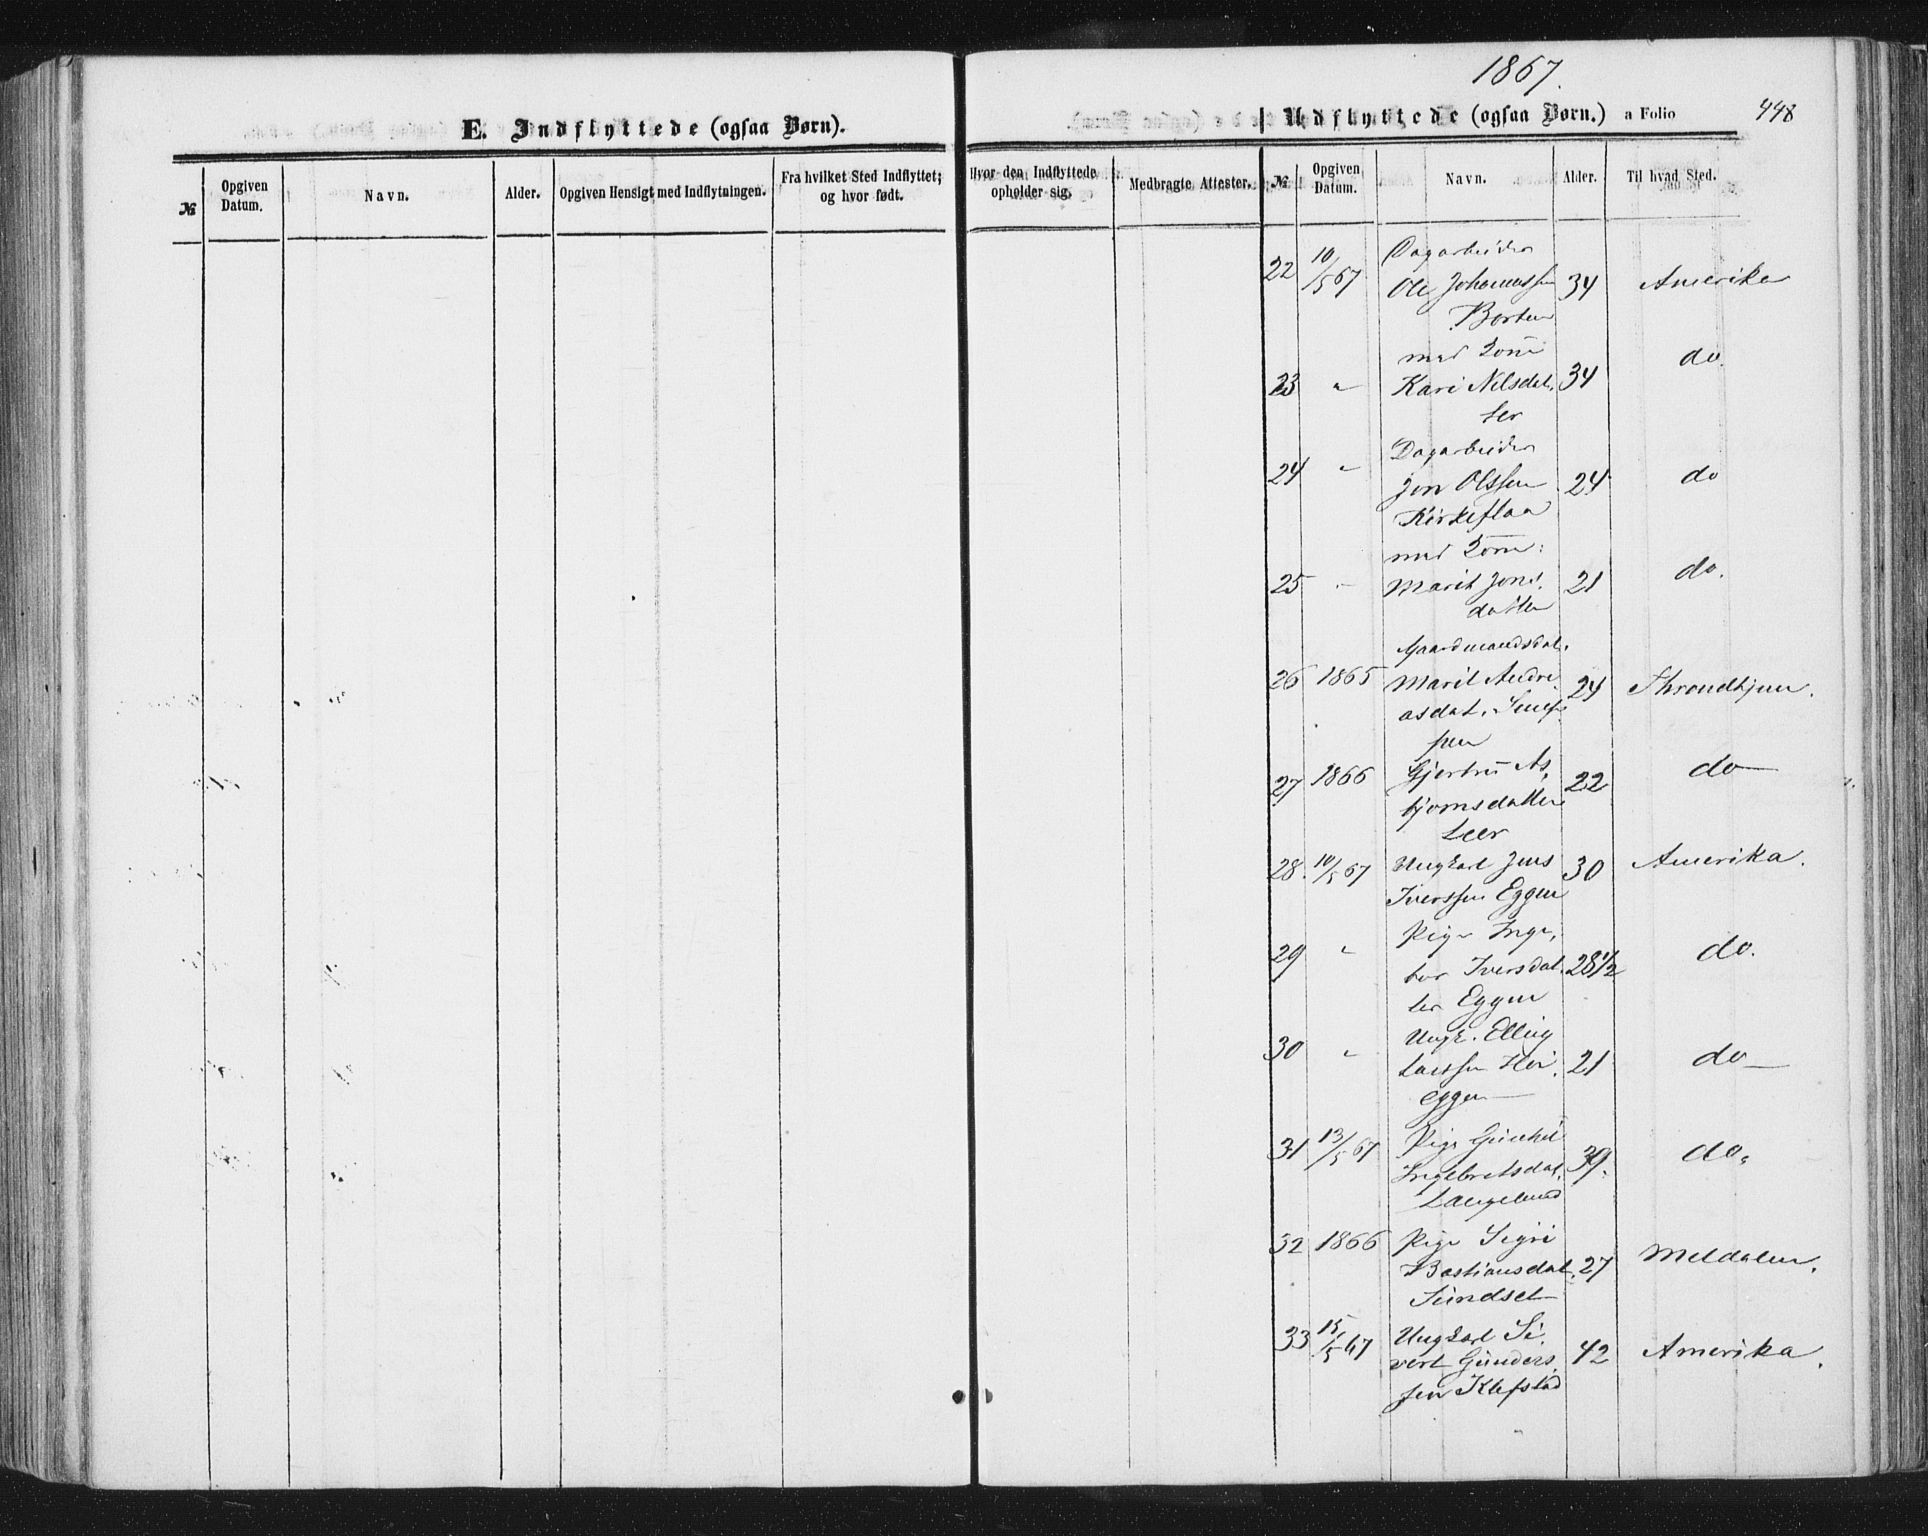 1867.
E. Indflyttede (ogsaa Børn).
Udflyttede (ogsaa Børn.) a Folio 448
№ Opgiven Datum. Navn. Alder. Opgiven Hensigt med Indflytningen. Fra hvilket Sted Indflyttet; og hvor født. Hvor den Indflyttede opholder sig. Medbragte Attester. № Opgiven Datum. Navn. Alder. Til hvad Sted.
Dagarbeider
22 10/5 67 Ole Johannessen 34 Amerika
Borten
med Kone
23 " Kari Nilsdat, 34 do.
ter
Dagarbeider
24 " Jon Olssen 24 do
Kirkeflaa
med Kone:
25 " Marit Jons, 21 do.
datter
Gaardmandsdat.
26 1865 Marit Andre 24 Throndhjem.
asdat.
27 1866 Gjertru As, 22 do
bjørnsdatter
Leer
28. 10/5 67 Ungkarl Jens 30 Amerika.
Iverssen Eggen
Pige Inge,
29 " bor Iversdat 28 1/2 do.
ter Eggen
Ungk. Elling
30 " Larssen Hør, 21 do
eggen
31 13/5 67 Pige Gunhil
Ingebretsdat, 39. do.
Langeland
32 1866 Pige Sigri
Bastiansdat. 27 Meldalen.
Sundset
33 15/5 67 Ungkarl Si,
vert Gunders, 42 Amerika.
sen Klefstad